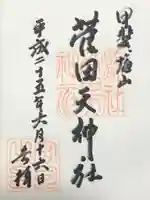 甲斐塩山
菅田天神社
平成二十五年六月十六日